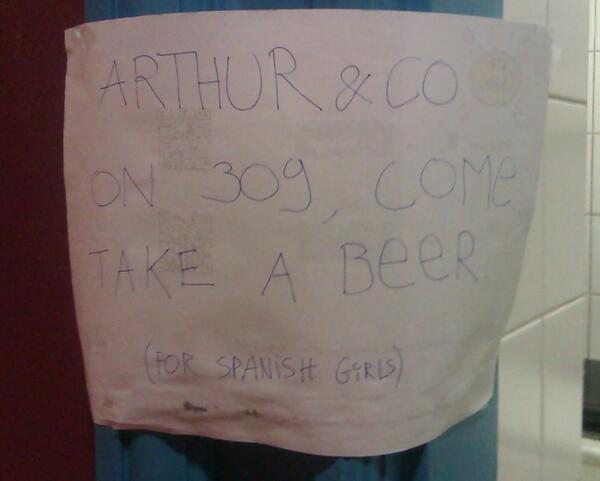 ARTHUR & CO
ON 309, COME
TAKE A BeeR.
(FOR SPANiSH GiRLS)